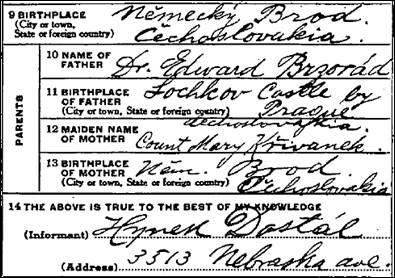 9 BIRTHPLACE Německý Brod.
(City or town,
State or foreign country) Cechoslovakia.
10 NAME OF
FATHER Dr. Edward Brzorád
11 BIRTHPLACE
OF FATHER Lochkov Castle by
(City or town, State or foreign country) Prague
Cechoslovakia.
12 MAIDEN NAME
OF MOTHER Count Mary Křivanek.
13 BIRTHPLACE
OF MOTHER Něm. Brod.
(City or town, State or foreign country) Čechoslovakia
PARENTS
14 THE ABOVE IS TRUE TO THE BEST OF MY KNOWLEDGE
(Informant) Hynek Dostál
(Address) 3513 Nebraska ave.